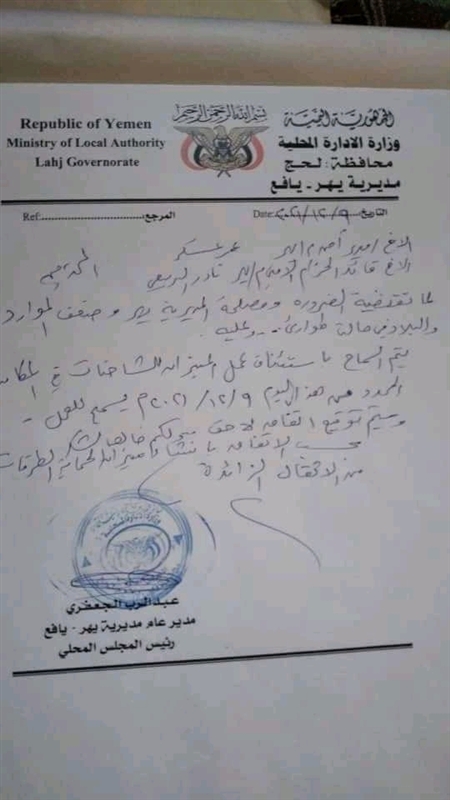 بسم الله الرحمن الرحيم
Republic of Yemen
Ministry of Local Authority
Lahj Governorate
الجمهورية اليمنية
وزارة الادارة المحلية
محافظة : لحج
مديرية يهر - يافع
Ref:.................................المرجع
Date: ٢٠٢١/١٢/٩ التاريخ
الأخ / مدير أمن يهر عمر عسكر
الأخ قائد الحزام الأمني يهر نادر المحترمين
لما تقتضية الضرورة ومصلحة المديرية يهر وضعف الموارد
والبلاد في حالة طوارئ .. وعليه
يتم السماح باستئناف عمل الميزان للشاحنات في المكان
المحدد من هذا اليوم ٢٠٢١/١٢/٩م يسمح للعمل -
وسيتم توقيع اتفاقه لاحق
حسب الاتفاقه لحماية الطرقات
من الاثقال الزائدة
عبدالرب الجعفري
مدير عام مديرية يهر - يافع
رئيس المجلس المحلي